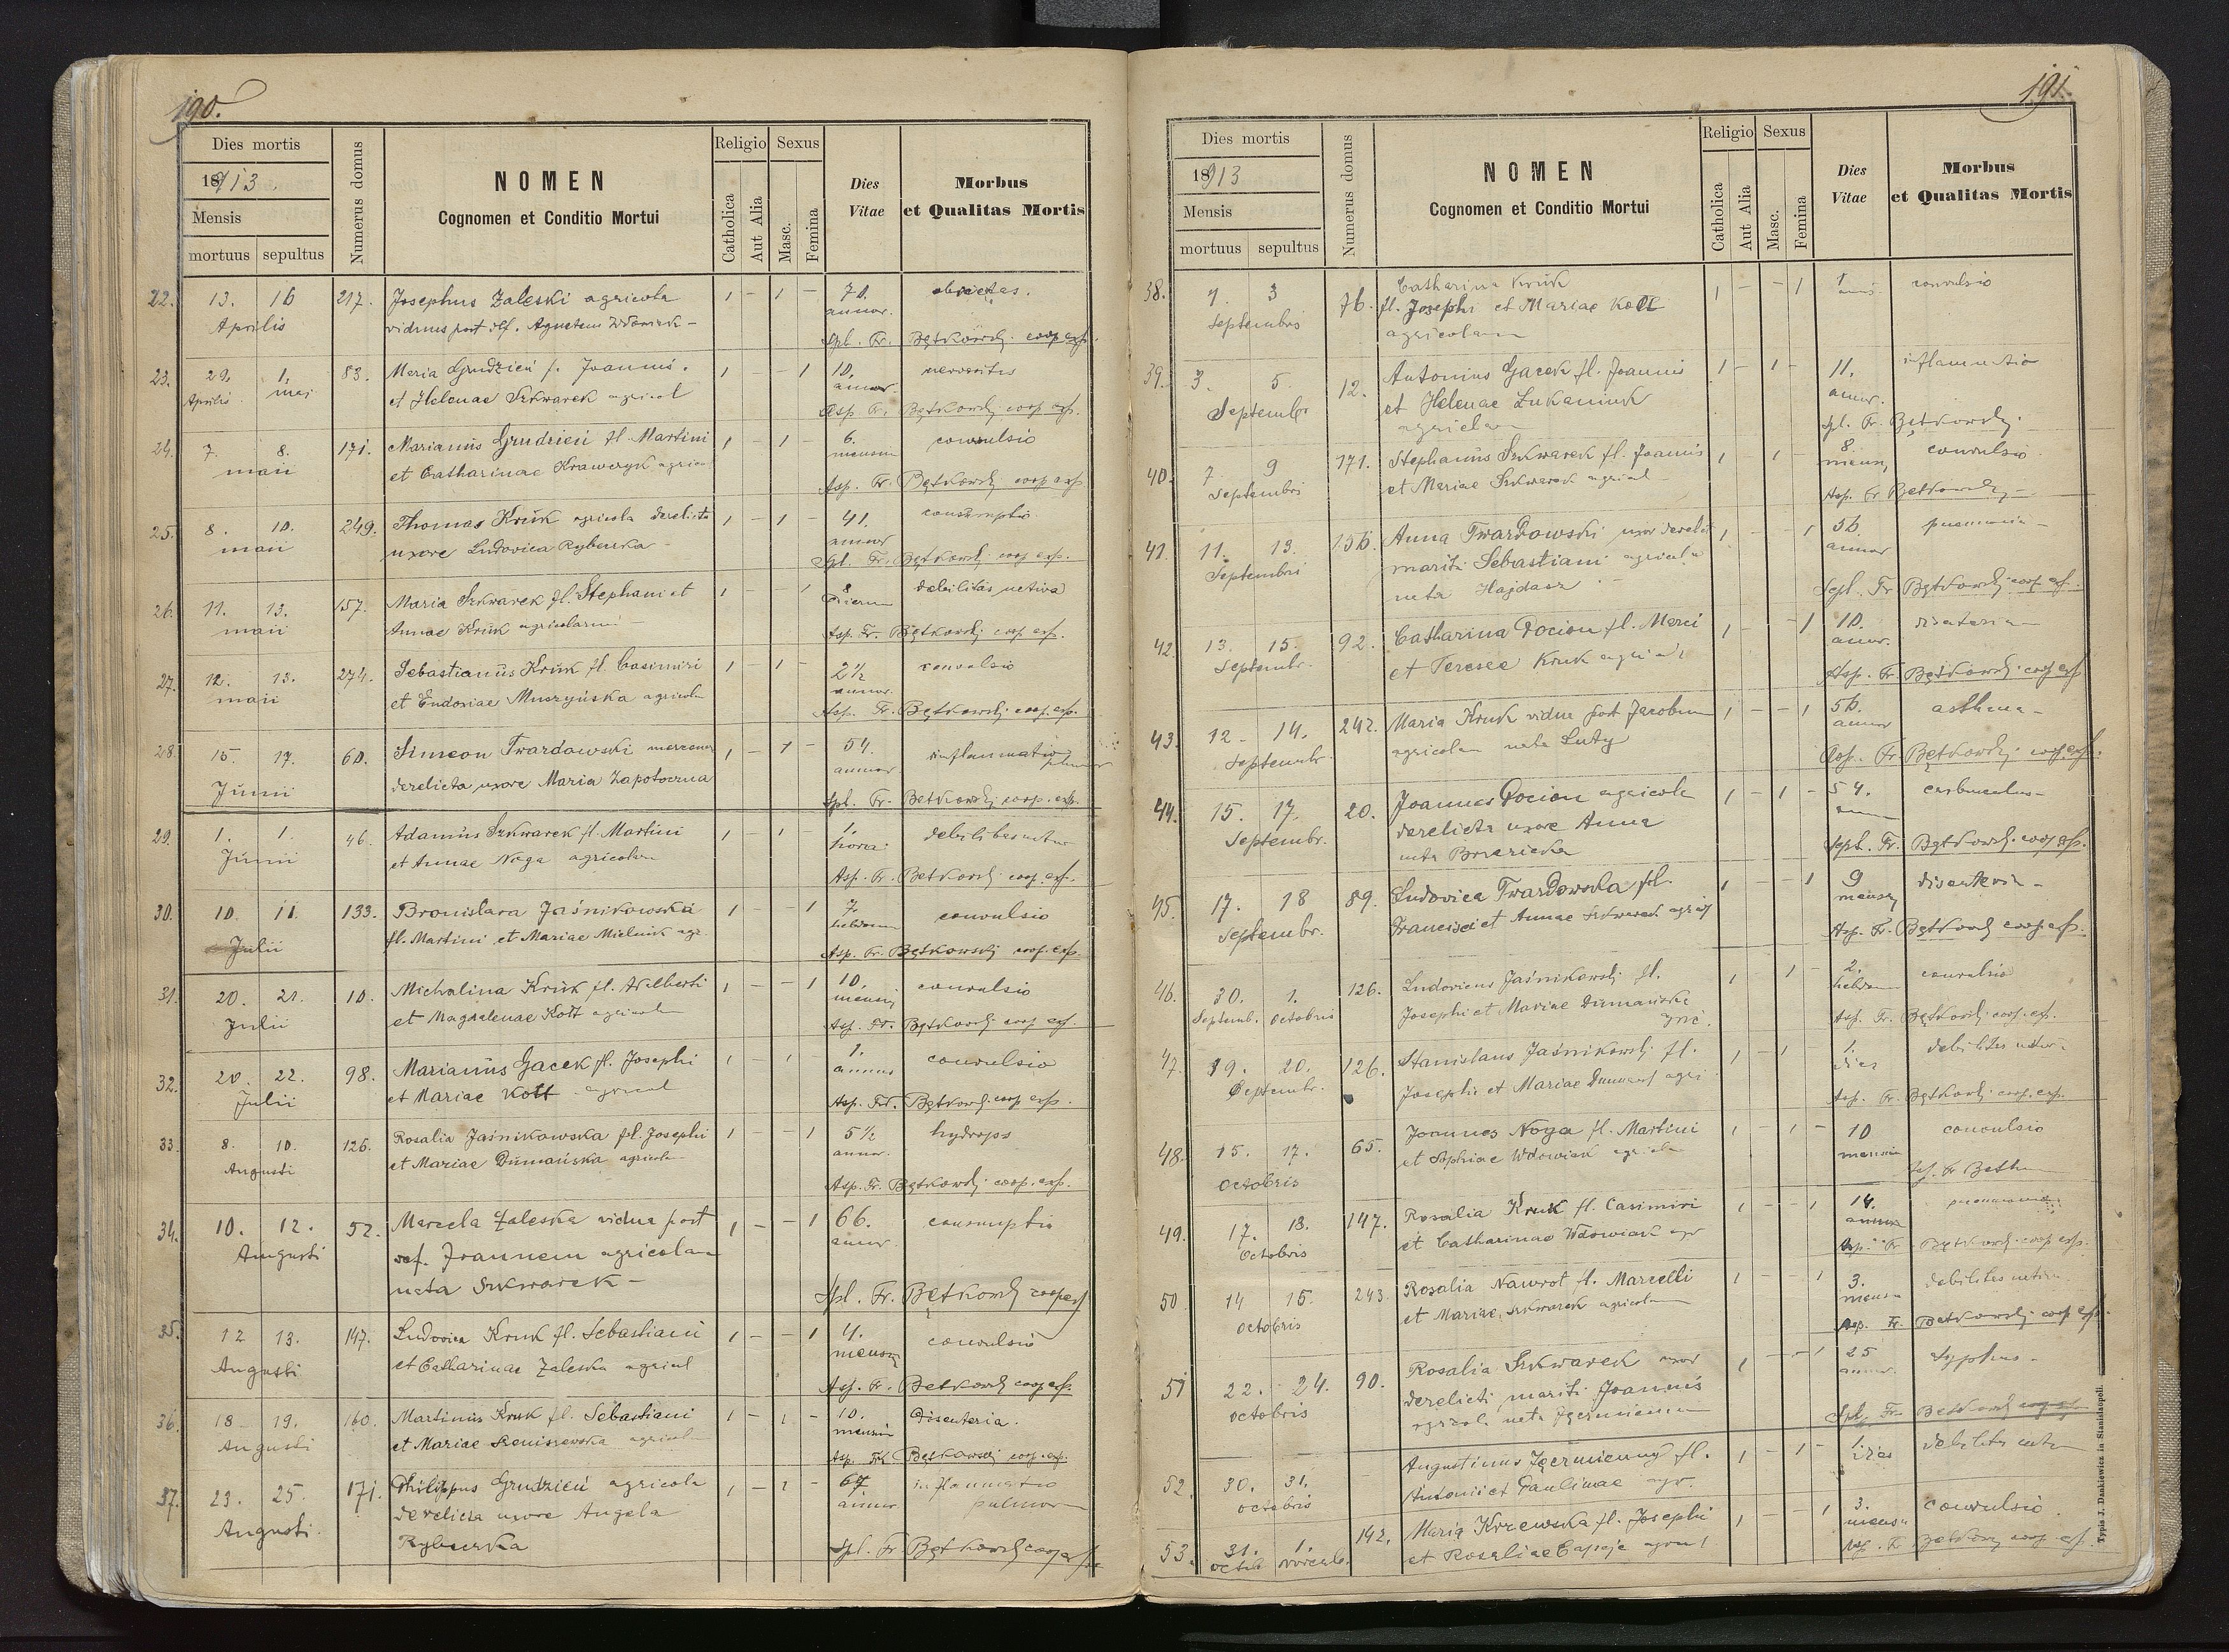 190.
Dies mortis
1913.
Mensis
mortuus sepultus
Numerus domus
NOMEN
Cognomen et Conditio Mortui
Religio Sexus
Catholica
Aut Alia
Masc.
Femina
Dies
Vitae
Morbus
et Qualitas Mortis
22. 13. 16 217. Josephus Zaleski agricola 1 - 1 - 70.
Aprilis viduus post def. Agnetem annor.
Spl. Fr. Bętkowski coop. exp.
23. 29. 1. 83. Maria Grudzień f. Joannis 1 - - 1 10.
Aprilis maj et Helenae Szkwarek agricol annor
Asp. Fr. Bętkowski coop. exp.
24. 7. 8. 171. Marianus Grudzień fl. Martini 1 - 1 - 6. convulsio
maii et Catharinae Krawczyk agricol mensium
Asp. Fr. Bętkowski coop exp
25. 8. 10. 249. Thomas Kruk agricola derelicta 1 - 1 - 41. consumptio
maii uxore Ludovica Ryburka annor
Spl. Fr. Bętkowski coop. exp.
26. 11. 13. 157. Maria Szkwarek fl. Stephani et 1 - - 1 8 debilitas nativa
maii Annae Kruk agricolarum dierum
Asp. Fr. Bętkowski coop. exp.
27. 12. 13. 274. Sebastianus Kruk fl. Casimiri 1 - 1 - 2½ convulsio
maii et Eudoxiae Muszyńska agricola annor.
Asp. Fr. Bętkowski coop. exp.
28. 15. 17. 60. Simeon Twardowski 1 - 1 - 54. inflammatio
Junii derelicta uxore Maria Zapotoczna annor
Spl. Fr. Bętkowski coop. exp.
29. 1. 1. 46. Adamus Szkwarek fl. Martini 1 - 1 - 1. debilitas
Junii et Annae Noga agricolar hora
Asp. Fr. Bętkowski coop. exp.
30. 10. 11. 133. Bronislava Jaśnikowska 1 - - 1 7. convulsio
Julii fl. Martini et Mariae Mielnik agr. hebdom
Asp. Fr. Bętkowski coop. exp.
31. 20. 21. 10. Michalina Kruk fl. Adalberti 1 - - 1 10. convulsio
Julii et Magdalenae Kott agricola mensium
Asp. Fr. Bętkowski coop exp.
32. 20. 22. 98. Marianus Gacek fl. Josephi 1 - 1 1. convulsio
Julii et Mariae Kott agricol annus
Asp. Fr. Bętkowski coop exp.
33. 8. 10. 126. Rosalia Jaśnikowska fl. Josephi 1 - - 1 5½ hydrops
Augusti et Mariae Dumańska agricola annor.
Asp. Fr. Bętkowski coop. exp.
34. 10. 12. 52. Marcela Zaleska vidua post 1 - - 1 66. consumptio
Augusti def. Joannem agricolam annor
nata Szkwarek -
Spl. Fr. Bętkowski coop exp
35. 12 13. 147. Ludovica Kruk fl. Sebastiani 1 - - 1 4. convulsio
Augusti et Catharinae Zaleska agricol mensium
Asp. Fr. Bętkowski coop exp.
36. 18 19. 160. Martinus Kruk fl. Sebastiani 1 - 1 - 10. Disenteria.
Augusti et Mariae agricol mensium
Asp. Fr. Bętkowski coop. exp.
37. 23. 25. 171. Philippus Grudzień agricola 1 - 1 - 67 inflammatio
Augusti. derelicta uxore Angela annor pulmon
Ryburka
Spl. Fr. Bętkowski coop exp
191.
Dies mortis
1913
Mensis
mortuus sepultus
Numerus domus
NOMEN
Cognomen et Conditio Mortui
Religio Sexus
Catholica
Aut Alia
Masc.
Femina
Dies
Vitae
Morbus
et Qualitas Mortis
38. 3 76. Catharina Kruk 1 - - 1 1 convulsio
Septembris fl. Josephi et Mariae Kott
agricolarum
39. 3. 5. 12. Antonius Gacek fl. Joannis 1 - 1 - 11. inflammatio
Septembr et Helenae Lukaniuk annor.
Spl. Fr. Bętkowski.
40. 7 9 171. Stephanus Szkwarek fl. Joannis 1 - 1 - 8. convulsio
Septembris et Mariae Szkwarek agricol mensium
Asp. Fr Bętkowski
41. 11. 13. 156. Anna Twardowski uxor derelicti 1 - - 1 56. pneumonia -
Septembris mariti Sebastiani agricola annor
nata Hajdasz
Sepl. Fr Bętkowski coop. exp.
42. 13. 15. 92. Catharina Pocion fl. Marci 1 - - 1 10.
Septembr. et Teresae Kruk annor.
Asp. Fr. Bętkowski coop exp
43. 12 - 14. 242. Maria Kruk vidua post Jacobum 1 - - 1 56. asthma -
Septembr. agricolam nata Luty annor
Asp. Fr. Bętkowski coop. exp.
44. 15. 17. 20. Joannes Pocion agricola 1 - 1 - 54. carbunculus -
Septembr. derelicta uxore Anna
nata
Sept. Fr. Bętkowski coop exp.
45. 17. 18 89. Ludovica Twardowska fl. 1 1 9 disenteria -
Septembr. Francisci et Annae Szkwarek agric mensium
Asp. Fr. Bętkowski coop. exp.
46. 30. 1. 126. Ludovicus Jaśnikowski fl. 1 1 - 2. convulsio
Septemb. Octobris Josephi et Mariae Dumańska hebdom
Asp. Fr. Bętkowski coop. exp.
47. 19. 20. 126. Stanislaus Jaśnikowski fl. 1 - 1 - 1.
Septembr. Josephi et Mariae agri dies
Asp. Fr. Bętkowski coop. exp.
48. 15. 17. 65. Joannes Noga fl. Martini 1 - 1 - 10 convulsio
Octobris et Sophiae Wdowiak mensium
49. 17. 18. 147. Rosalia Kruk fl. Casimiri 1 - - 1 14.
Octobris et Catharinae Wdowiak agr annor
Asp. Fr Bętkowski coop exp.
50 14 15. 243. Rosalia Nawrot fl. Marcelli 1 - - 1 3. debilitas nativa
Octobris et Mariae Szkwarek agricolarum mensium
Asp. Fr. Bętkowski coop exp.
51 22. 24. 90. Rosalia Szkwarek uxor 1 - 1 25 typhus -
Octobris derelicti mariti Joannis annor.
Spl. Fr. Bętkowski
52. 30. 31. Augustinus fl. 1 - 1 - 1.
Octobris Antonii et Paulinae agr. dies
53. 31. 1. 142. Maria fl. Josephi 1 - - 1 3. convulsio
Octob. Novemb. et Rosaliae mensium
Asp. Fr Bętkowski coop exp.
Typis J. Dankiewicz in Stanislaopoli.